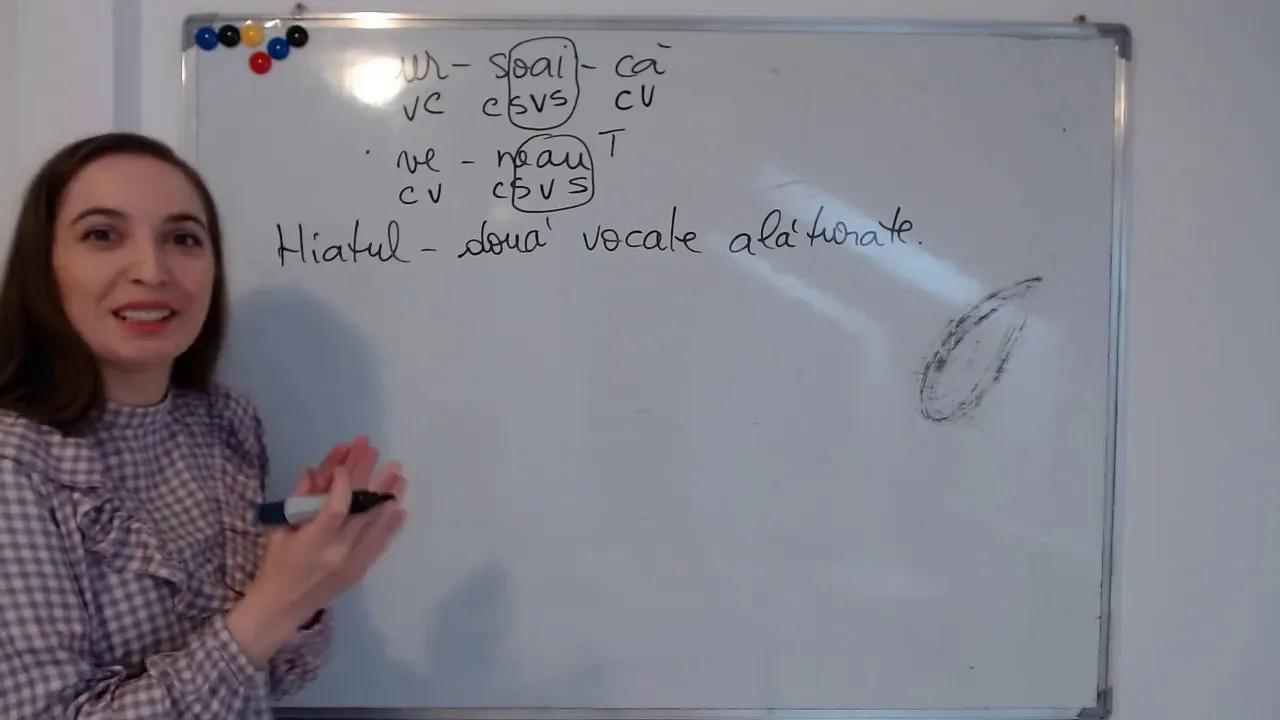 ur - soai - că
VC CSVS CV
ve - neau T
CV CSVS
Hiatul - două vocale alăturate.